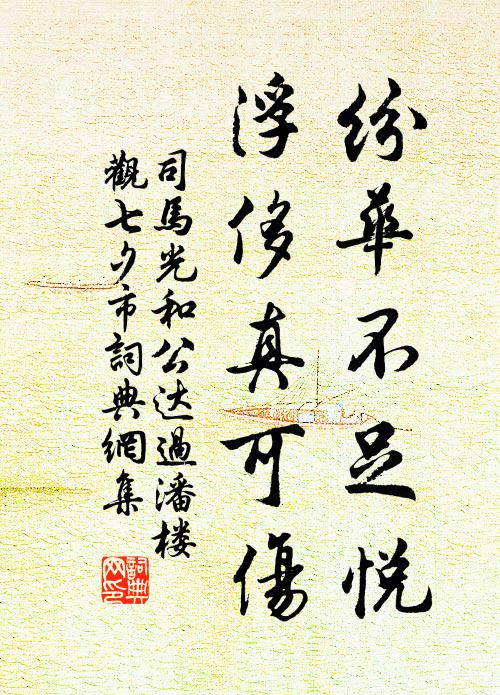 紛華不足悅
浮侈真可傷
司馬光和公达過潘楼
觀七夕市詞典網集
詞典网印